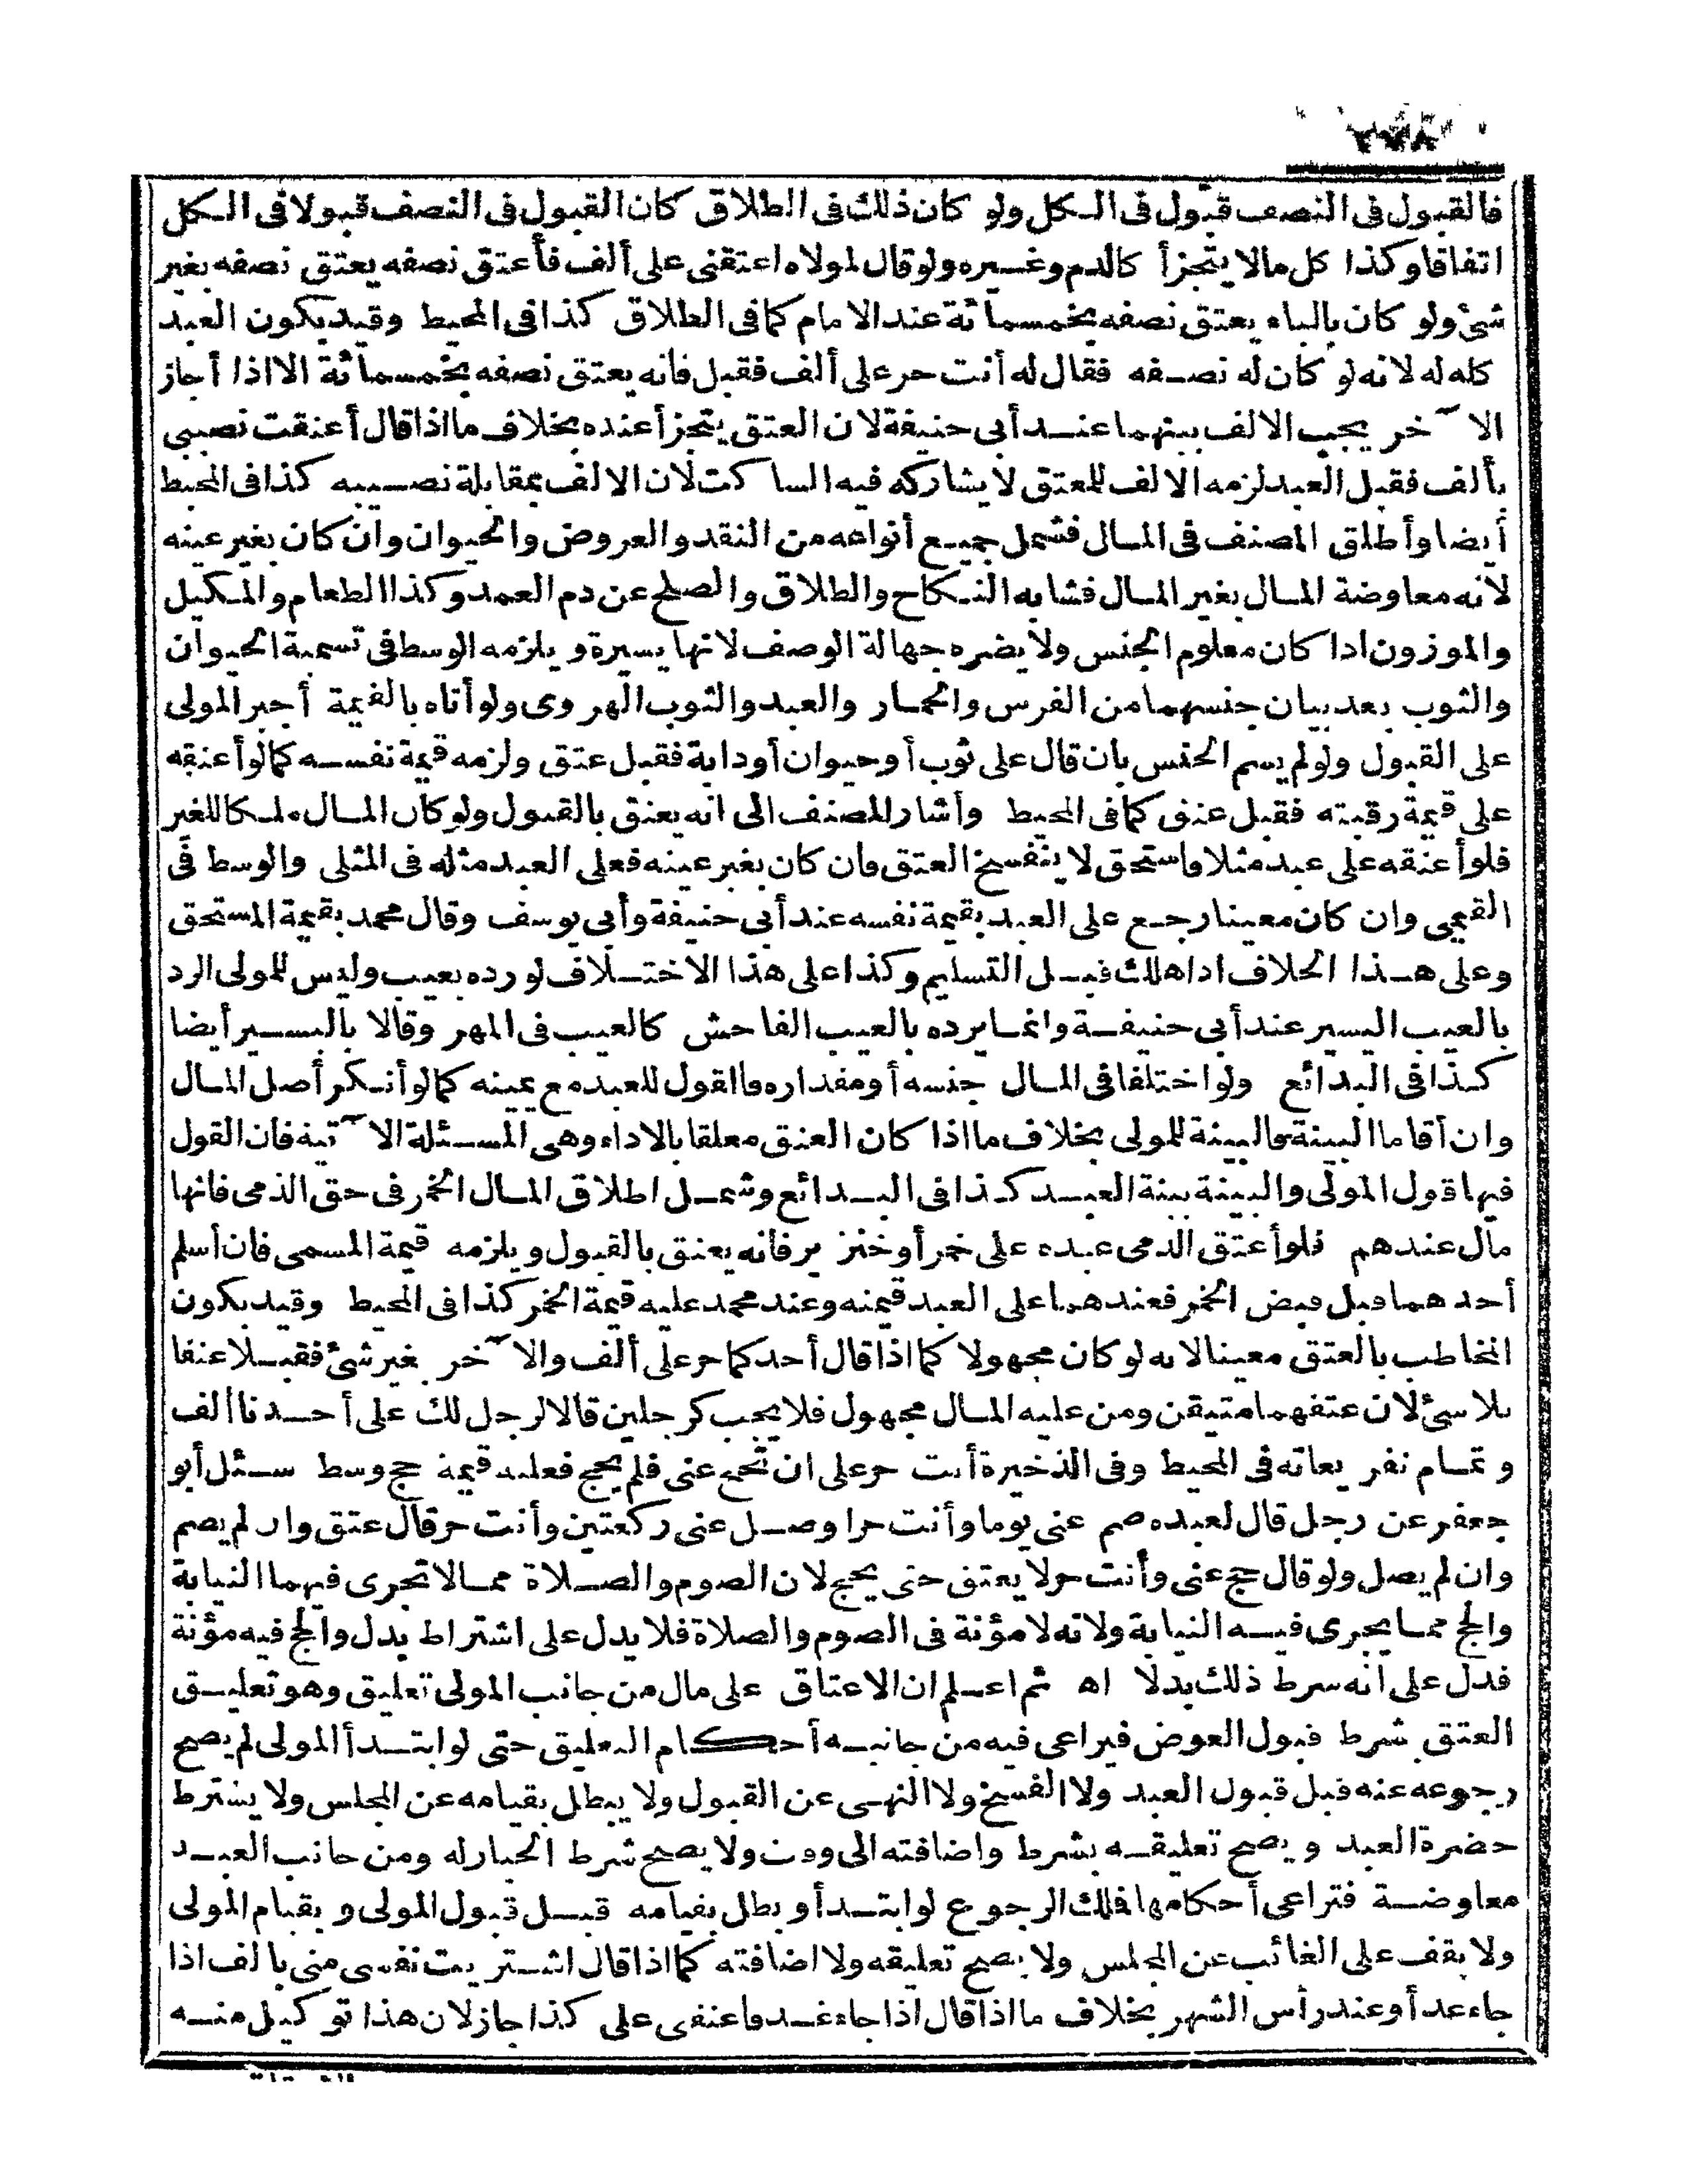 ٢٧٨
فالقبول في النصف قبول في الكل ولو كان ذلك في الطلاق كان القبول في النصف قبولا في الكل
اتفاقا وكذا كل مالا يتجزأ كالدم وغيره ولو قال لمولاه اعتقني على ألف فأعتق نصفه يعتق نصفه بغير
شئ ولو كان بالباء يعتق نصفه بخمسمائة عند الامام كما في الطلاق كذا في المحيط وقيد بكون العبد
كله له لانه لو كان له نصفه فقال له أنت حر على ألف فقبل فانه يعتق نصفه بخمسمائة الا اذا أجاز
الآخر يجب الالف بينهما عند أبي حنيفة لان العتق يتجزأ عنده بخلاف ما اذا قال أعتقت نصيبي
بألف فقبل العبد لزمه الالف للمعتق لا يشاركه فيه الساكت لان الالف بمقابلة نصيبه كذا في المحيط
أيضا وأطلق المصنف في المال فشمل جميع أنواعه من النقد والعروض والحيوان وان كان بغير عينه
لانه معاوضة المال بغير المال فشابه النكاح والطلاق والصلح عن دم العمد وكذا الطعام والمكيل
والموزون اذا كان معلوم الجنس ولا يضره جهالة الوصف لانها يسيرة ويلزمه الوسط في تسمية الحيوان
والثوب بعد بيان جنسهما من الفرس والحمار والعبد والثوب الهروى ولو أتاه بالقيمة أجبر المولى
على القبول ولو لم يسم الجنس بان قال على ثوب أو حيوان أو دابة فقبل عتق ولزمه قيمة نفسه كما لو أعتقه
على قيمة رقبته فقبل عتق كما في المحيط وأشار المصنف الى انه يعتق بالقبول ولو كان المال ملكا للغير
فلو أعتقه على عبد مثلا فاستحق لا ينفسخ العتق فان كان بغير عينه فعلى العبد مثله في المثلى والوسط في
القيمى وان كان معينا رجع على العبد بقيمة نفسه عند أبي حنيفة وأبي يوسف وقال محمد بقيمة المستحق
وعلى هذا الخلاف اذا هلك قبل التسليم وكذا على هذا الاختلاف لو رده بعيب وليس للمولى الرد
بالعيب اليسير عند أبي حنيفة وانما يرده بالعيب الفاحش كالعيب في المهر وقالا باليسير أيضا
كذا في البدائع ولو اختلفا في المال جنسه أو مقداره فالقول للعبد مع يمينه كما لو أنكر أصل المال
وان أقاما البينة فالبينة للمولى بخلاف ما اذا كان العتق معلقا بالاداء وهي المسئلة الآتية فان القول
فيها قول المولى والبينة بينة العبد كذا في البدائع وشمل اطلاق المال الخمر في حق الذمى فانها
مال عندهم فلو أعتق الذمى عبده على خمر أو خنزير فانه يعتق بالقبول ويلزمه قيمة المسمى فان أسلم
أحدهما قبل قبض الخمر فعندهما على العبد قيمته وعند محمد عليه قيمة الخمر كذا في المحيط وقيد بكون
المخاطب بالعتق معينا لانه لو كان مجهولا كما اذا قال أحدكما حر على ألف والآخر بغير شئ فقبلا عتقا
بلا شئ لان عتقهما متيقن ومن عليه المال مجهول فلا يجب كرجلين قالا لرجل لك على أحدنا ألف
وتمام تفريعاته في المحيط وفي الذخيرة أنت حر على ان تحج عني فلم يحج فعليه قيمة حج وسط سئل أبو
جعفر عن رجل قال لعبده صم عني يوما وأنت حر او صل عني ركعتين وأنت حر قال عتق وان لم يصم
وان لم يصل ولو قال حج عني وأنت حر لا يعتق حتى يحج لان الصوم والصلاة مما لا تجرى فيهما النيابة
والحج مما يجرى فيه النيابة ولانه لا مؤنة في الصوم والصلاة فلا يدل على اشتراط بدل والحج فيه مؤنة
فدل على انه شرط ذلك بدلا اه ثم اعلم ان الاعتاق على مال من جانب المولى تعليق وهو تعليق
العتق بشرط قبول العوض فيراعى فيه من جانبه أحكام التعليق حتى لو ابتدأ المولى لم يصح
رجوعه عنه قبل قبول العبد ولا الفسخ ولا النهى عن القبول ولا يبطل بقيامه عن المجلس ولا يشترط
حضرة العبد ويصح تعليقه بشرط واضافته الى وقت ولا يصح شرط الخيار له ومن جانب العبد
معاوضة فتراعى أحكامها فلك الرجوع لو ابتدأ وبطل بقيامه قبل قبول المولى وبقيام المولى
ولا يقف على الغائب عن المجلس ولا يصح تعليقه ولا اضافته كما اذا قال اشتريت نفسي منى بالف اذا
جاء غد أو عند رأس الشهر بخلاف ما اذا قال اذا جاء غد فاعتقنى على كذا جاز لان هذا توكيل منه